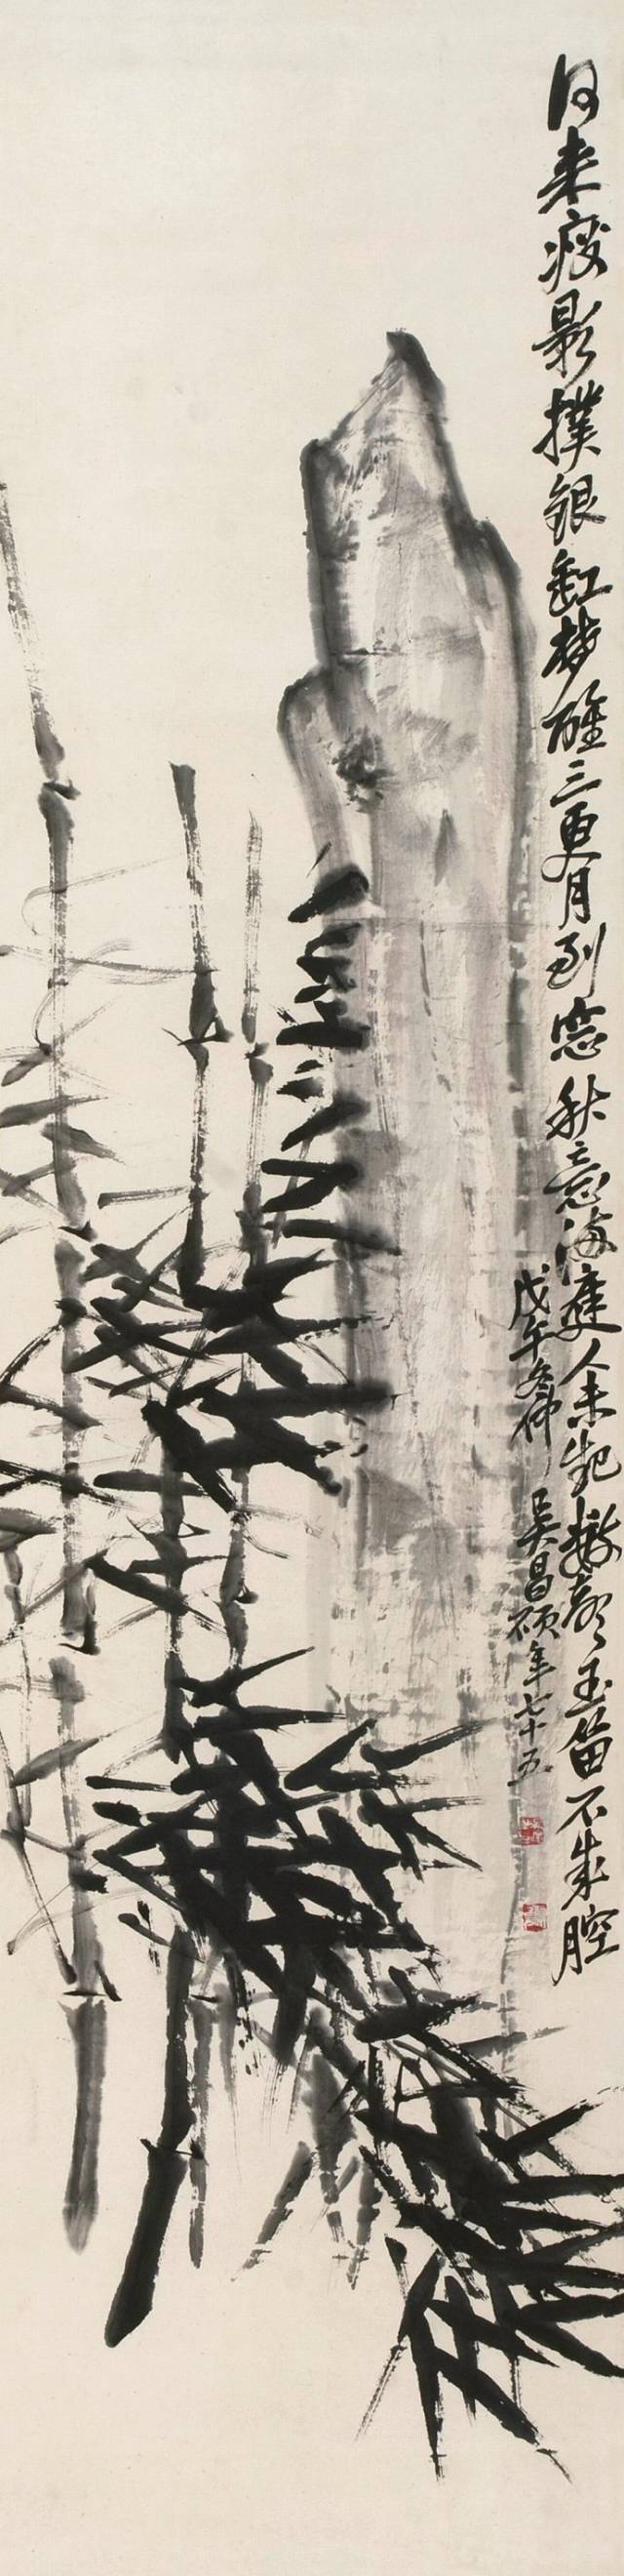 何来瘦影撲銀缸梦醒三更月到窓秋意滿庭人未起數聲玉笛不成腔
戊午冬仲
吴昌碩年七十五